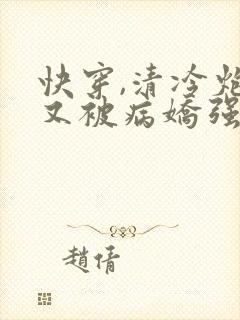 快穿,清冷炮
又被病嬌强
趙倩